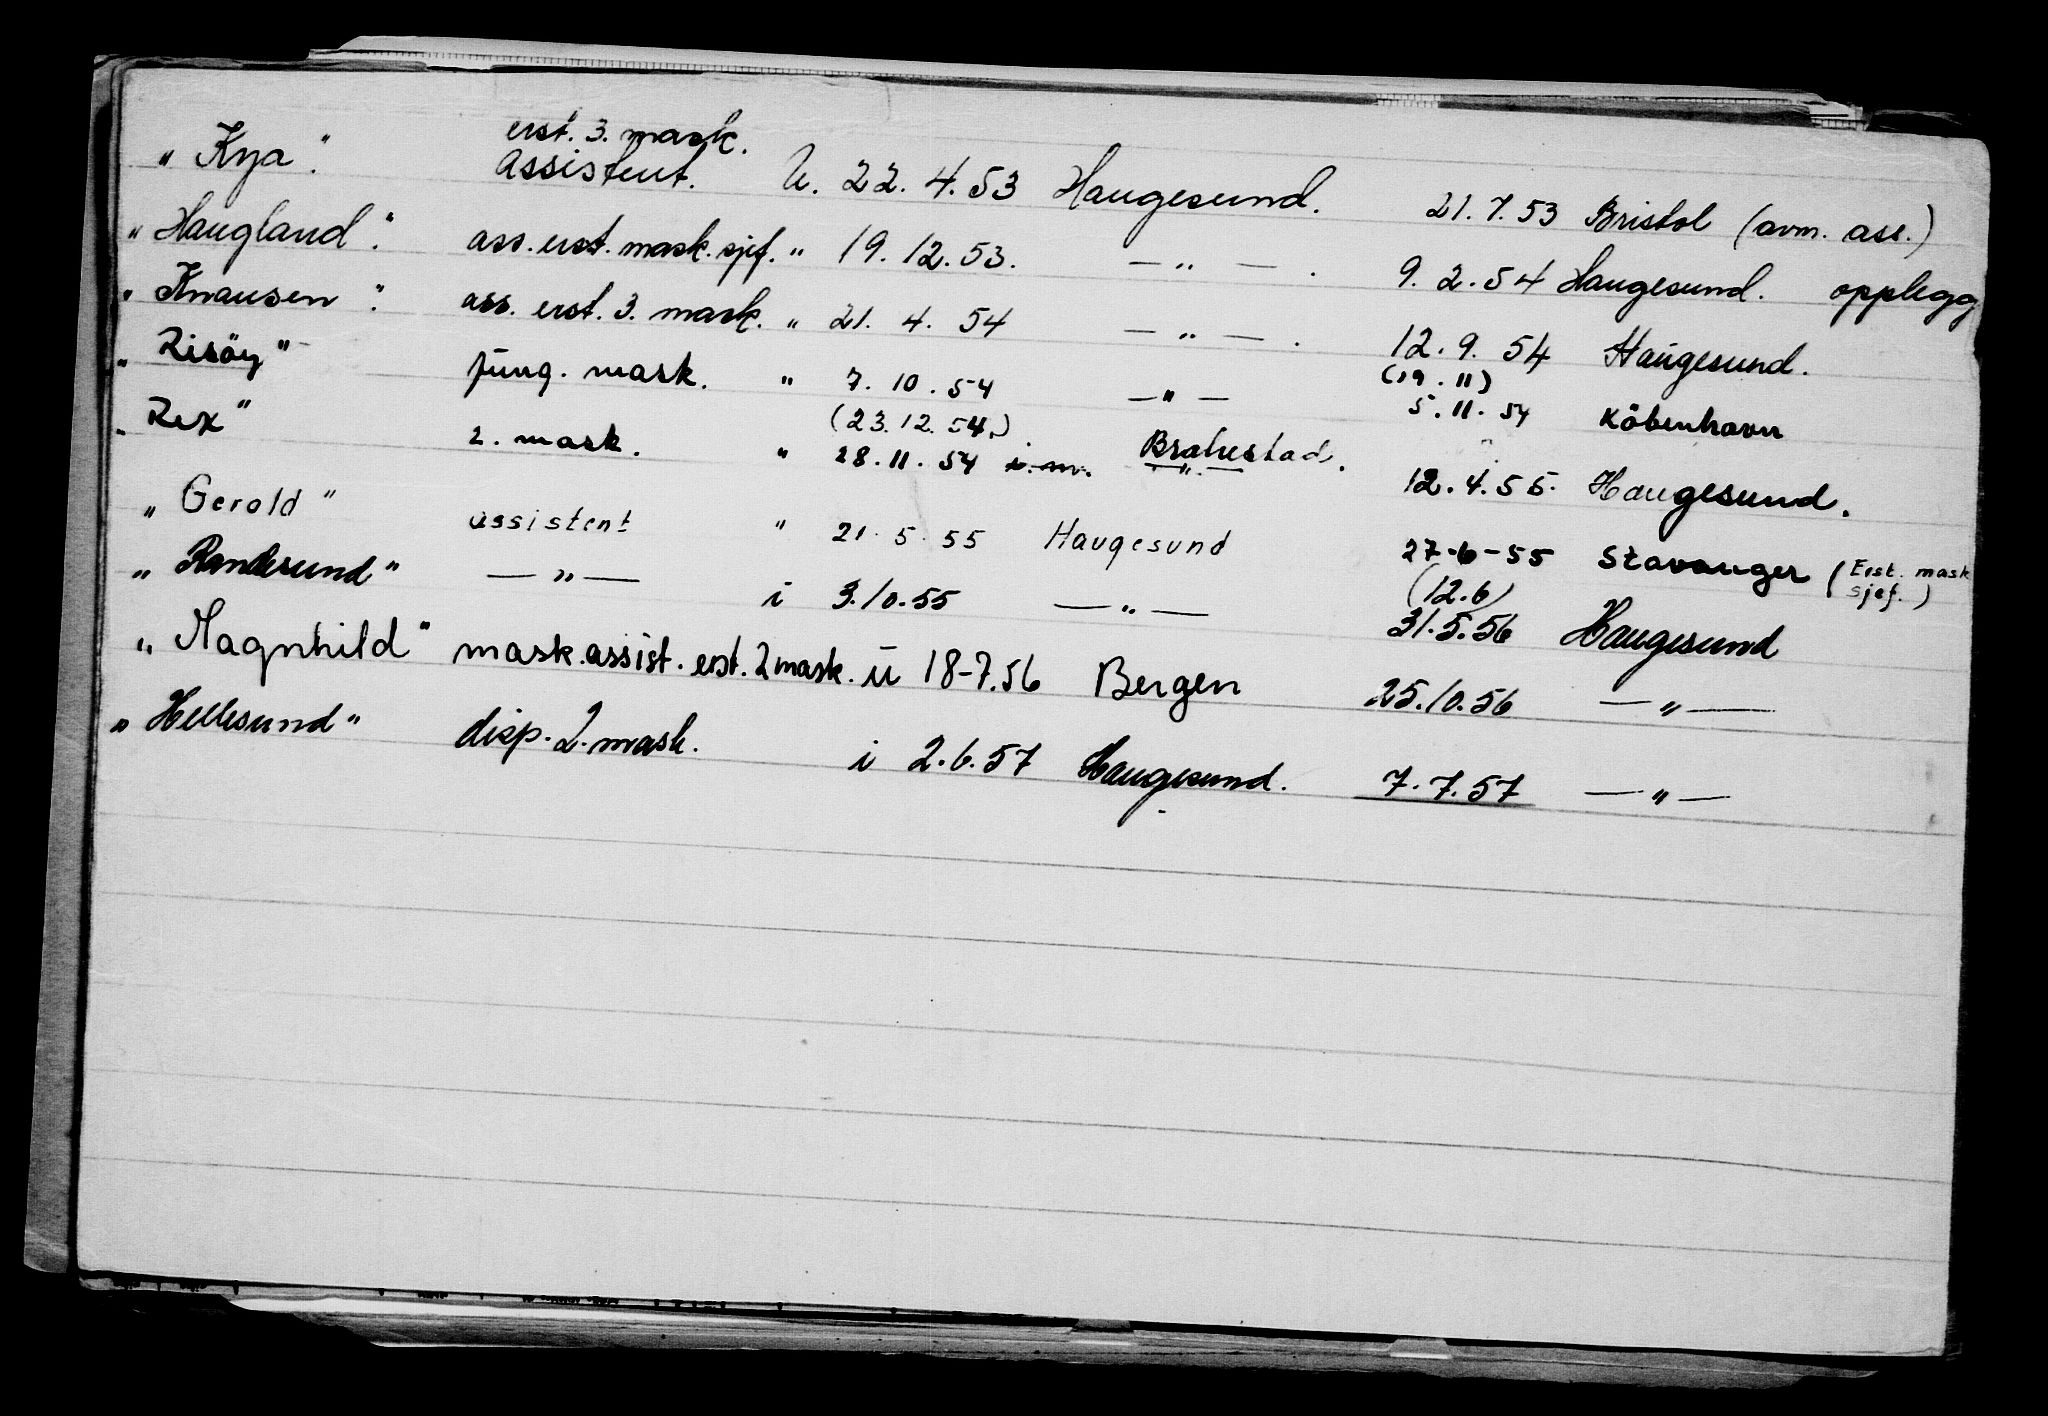 erst. 3. mask.
„ Kya ". Assistent. U. 22. 4. 53 Haugesund. 21. 7. 53 Bristol (avm. ass.)
„ Haugland ". ass. erst. mask. sjef. " 19. 12. 53. — " — . 9. 2. 54 Haugesund. opplegg
„ Knausen ". ass. erst. 3. mask. " 21. 4. 54 — " — . 12. 9. 54 Haugesund.
„ Risöy " jung. mask. " 7. 10. 54 — " — (19. 11) 5. 11. 54 Köbenhavn
„ Rex " 2. mask. " (23. 12. 54.) 28. 11. 54 Brahestad. — " — 12. 4. 55. Haugesund.
„ Gerold " assistent " 21. 5. 55 Haugesund 27-6-55 Stavanger (Erst. mask sjef.)
„ Randesund " — " — i 3.10.55 — " — (12.6) 31.5.56 Haugesund
„ Magnhild " mask. assist. erst. 2 mask. ü 18-7.56 Bergen 25.10.56 — " —
„ Hellesund " disp. 2. mask. i 2.6.57 Haugesund. 7.7.57 — " —